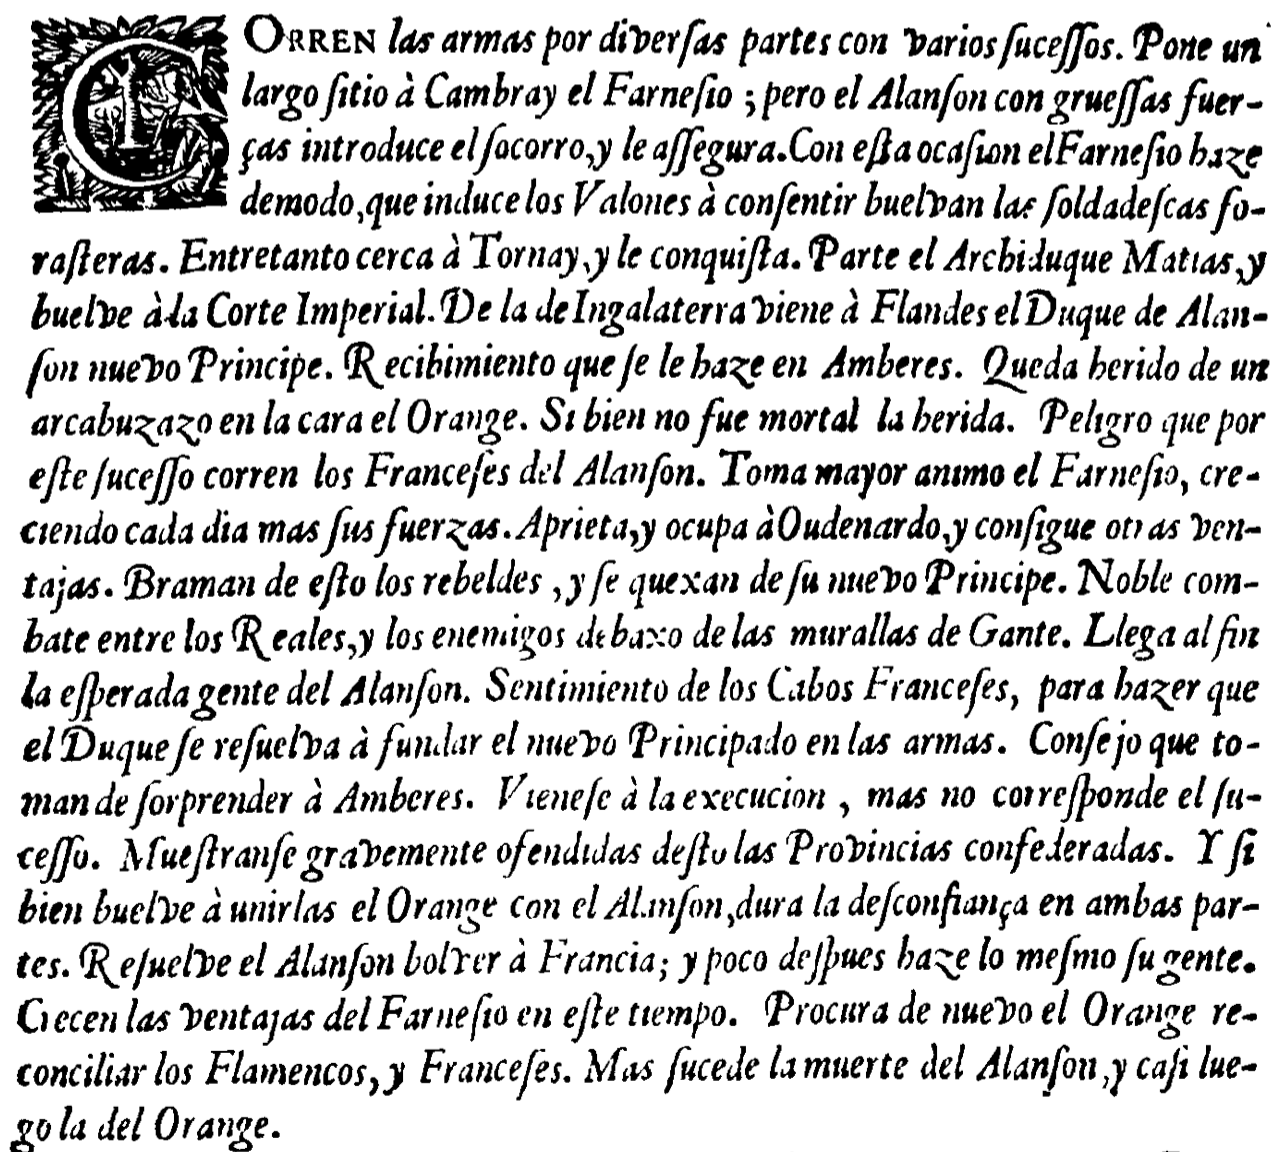 CORREN las armas por diversas partes con varios sucessos. Pone un
largo sitio à Cambray el Farnesio ; pero el Alanson con gruessas fuer-
ças introduce el socorro, y le assegura. Con esta ocasion el Farnesio haze
demodo, que induce los Valones à consentir buelvan las soldadescas fo-
rasteras. Entretanto cerca à Tornay, y le conquista. Parte el Archiduque Matias, y
buelve à la Corte Imperial. De la de Ingalaterra viene à Flandes el Duque de Alan-
son nuevo Principe. Recibimiento que se le haze en Amberes. Queda herido de un
arcabuzazo en la cara el Orange. Si bien no fue mortal la herida. Peligro que por
este sucesso corren los Franceses del Alanson. Toma mayor animo el Farnesio, cre-
ciendo cada dia mas sus fuerzas. Aprieta, y ocupa à Oudenardo, y consigue otras ven-
tajas. Braman de esto los rebeldes , y se quexan de su nuevo Principe. Noble com-
bate entre los Reales, y los enemigos debaxo de las murallas de Gante. Llega al fin
la esperada gente del Alanson. Sentimiento de los Cabos Franceses, para hazer que
el Duque se resuelva à fundar el nuevo Principado en las armas. Consejo que to-
man de sorprender à Amberes. Vienese à la execucion , mas no corresponde el su-
cesso. Muestranse gravemente ofendidas desto las Provincias confederadas. Y si
bien buelve à unirlas el Orange con el Alanson, dura la desconfiança en ambas par-
tes. Resuelve el Alanson bolver à Francia; y poco despues haze lo mesmo su gente.
Crecen las ventajas del Farnesio en este tiempo. Procura de nuevo el Orange re-
conciliar los Flamencos, y Franceses. Mas sucede la muerte del Alanson, y casi lue-
go la del Orange.